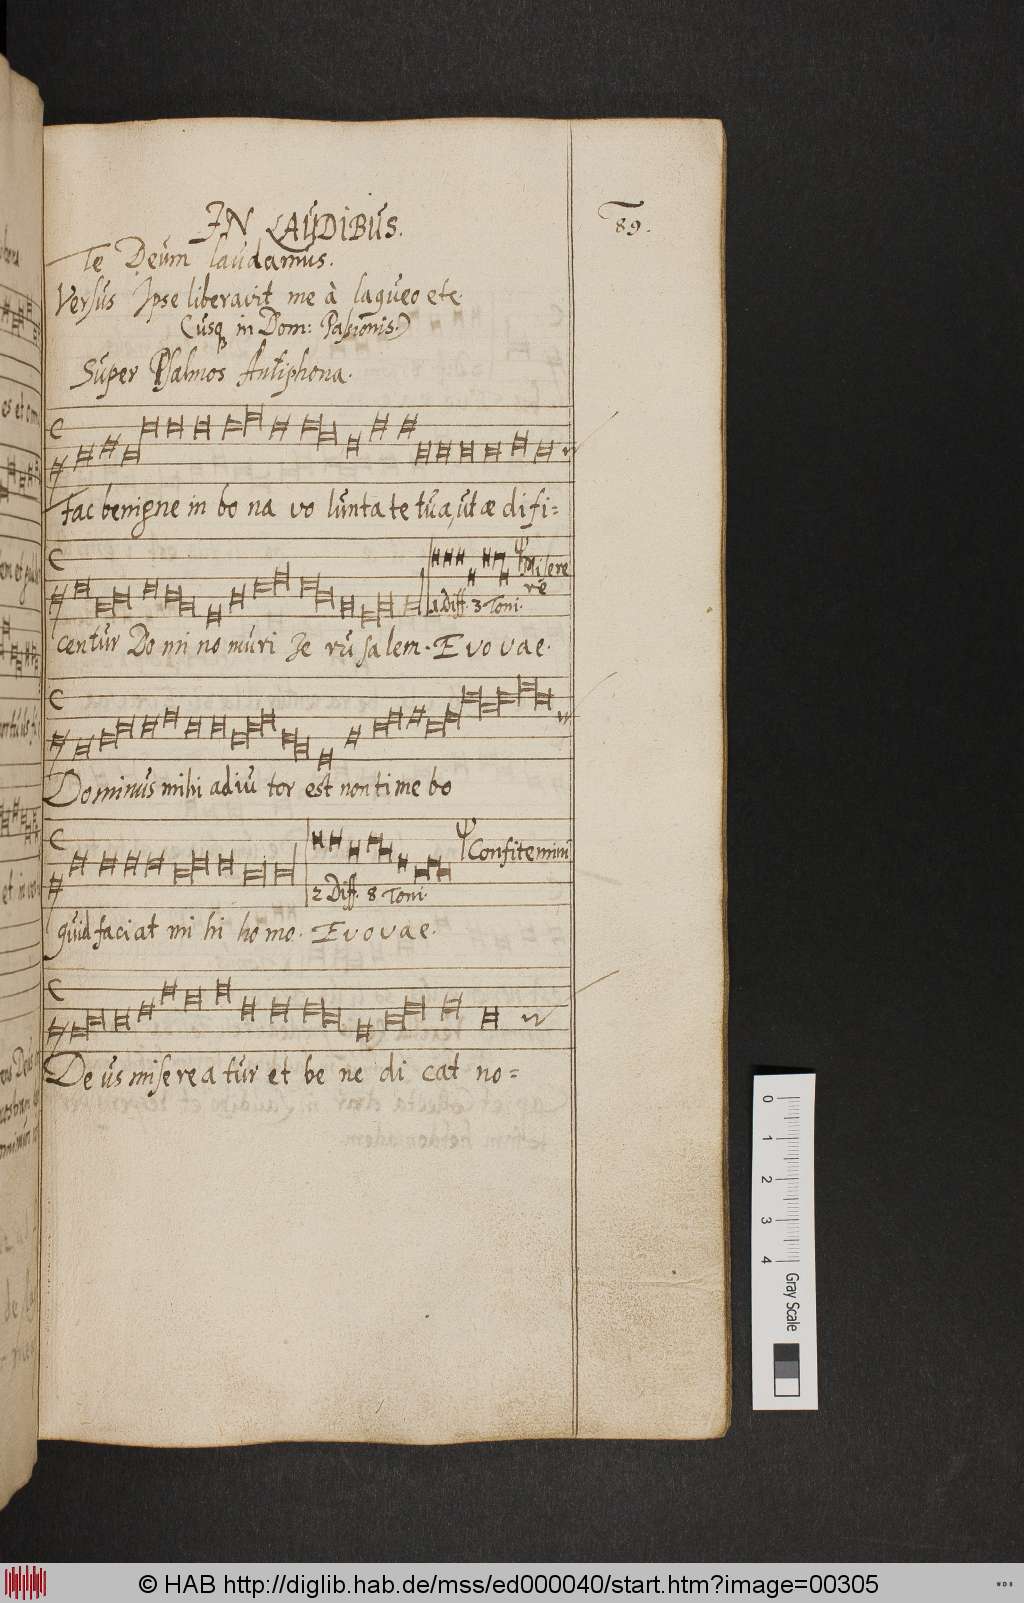 IN LAUDIBUS.
89.
Te Deum laudamus.
Versus Ipse liberavit me à laqueo etc
(usq in Dom: Passionis.)
Super Psalmos Antiphona.
Fac benigne in bo na vo lunta te tua, ut æ difi=
Misere
re
1. Diff. 3 Toni.
centur Do mi no muri Je ru salem. E vo vae.
Dominus mihi adiu tor est non time bo
Confitemini
2 Diff. 8 Toni.
quid faciat mi hi homo. E v o v a e.
De us misere a tur et be ne di cat no=
0 1 2 3 4 Gray Scale
© HAB http://diglib.hab.de/mss/ed000040/start.htm?image=00305